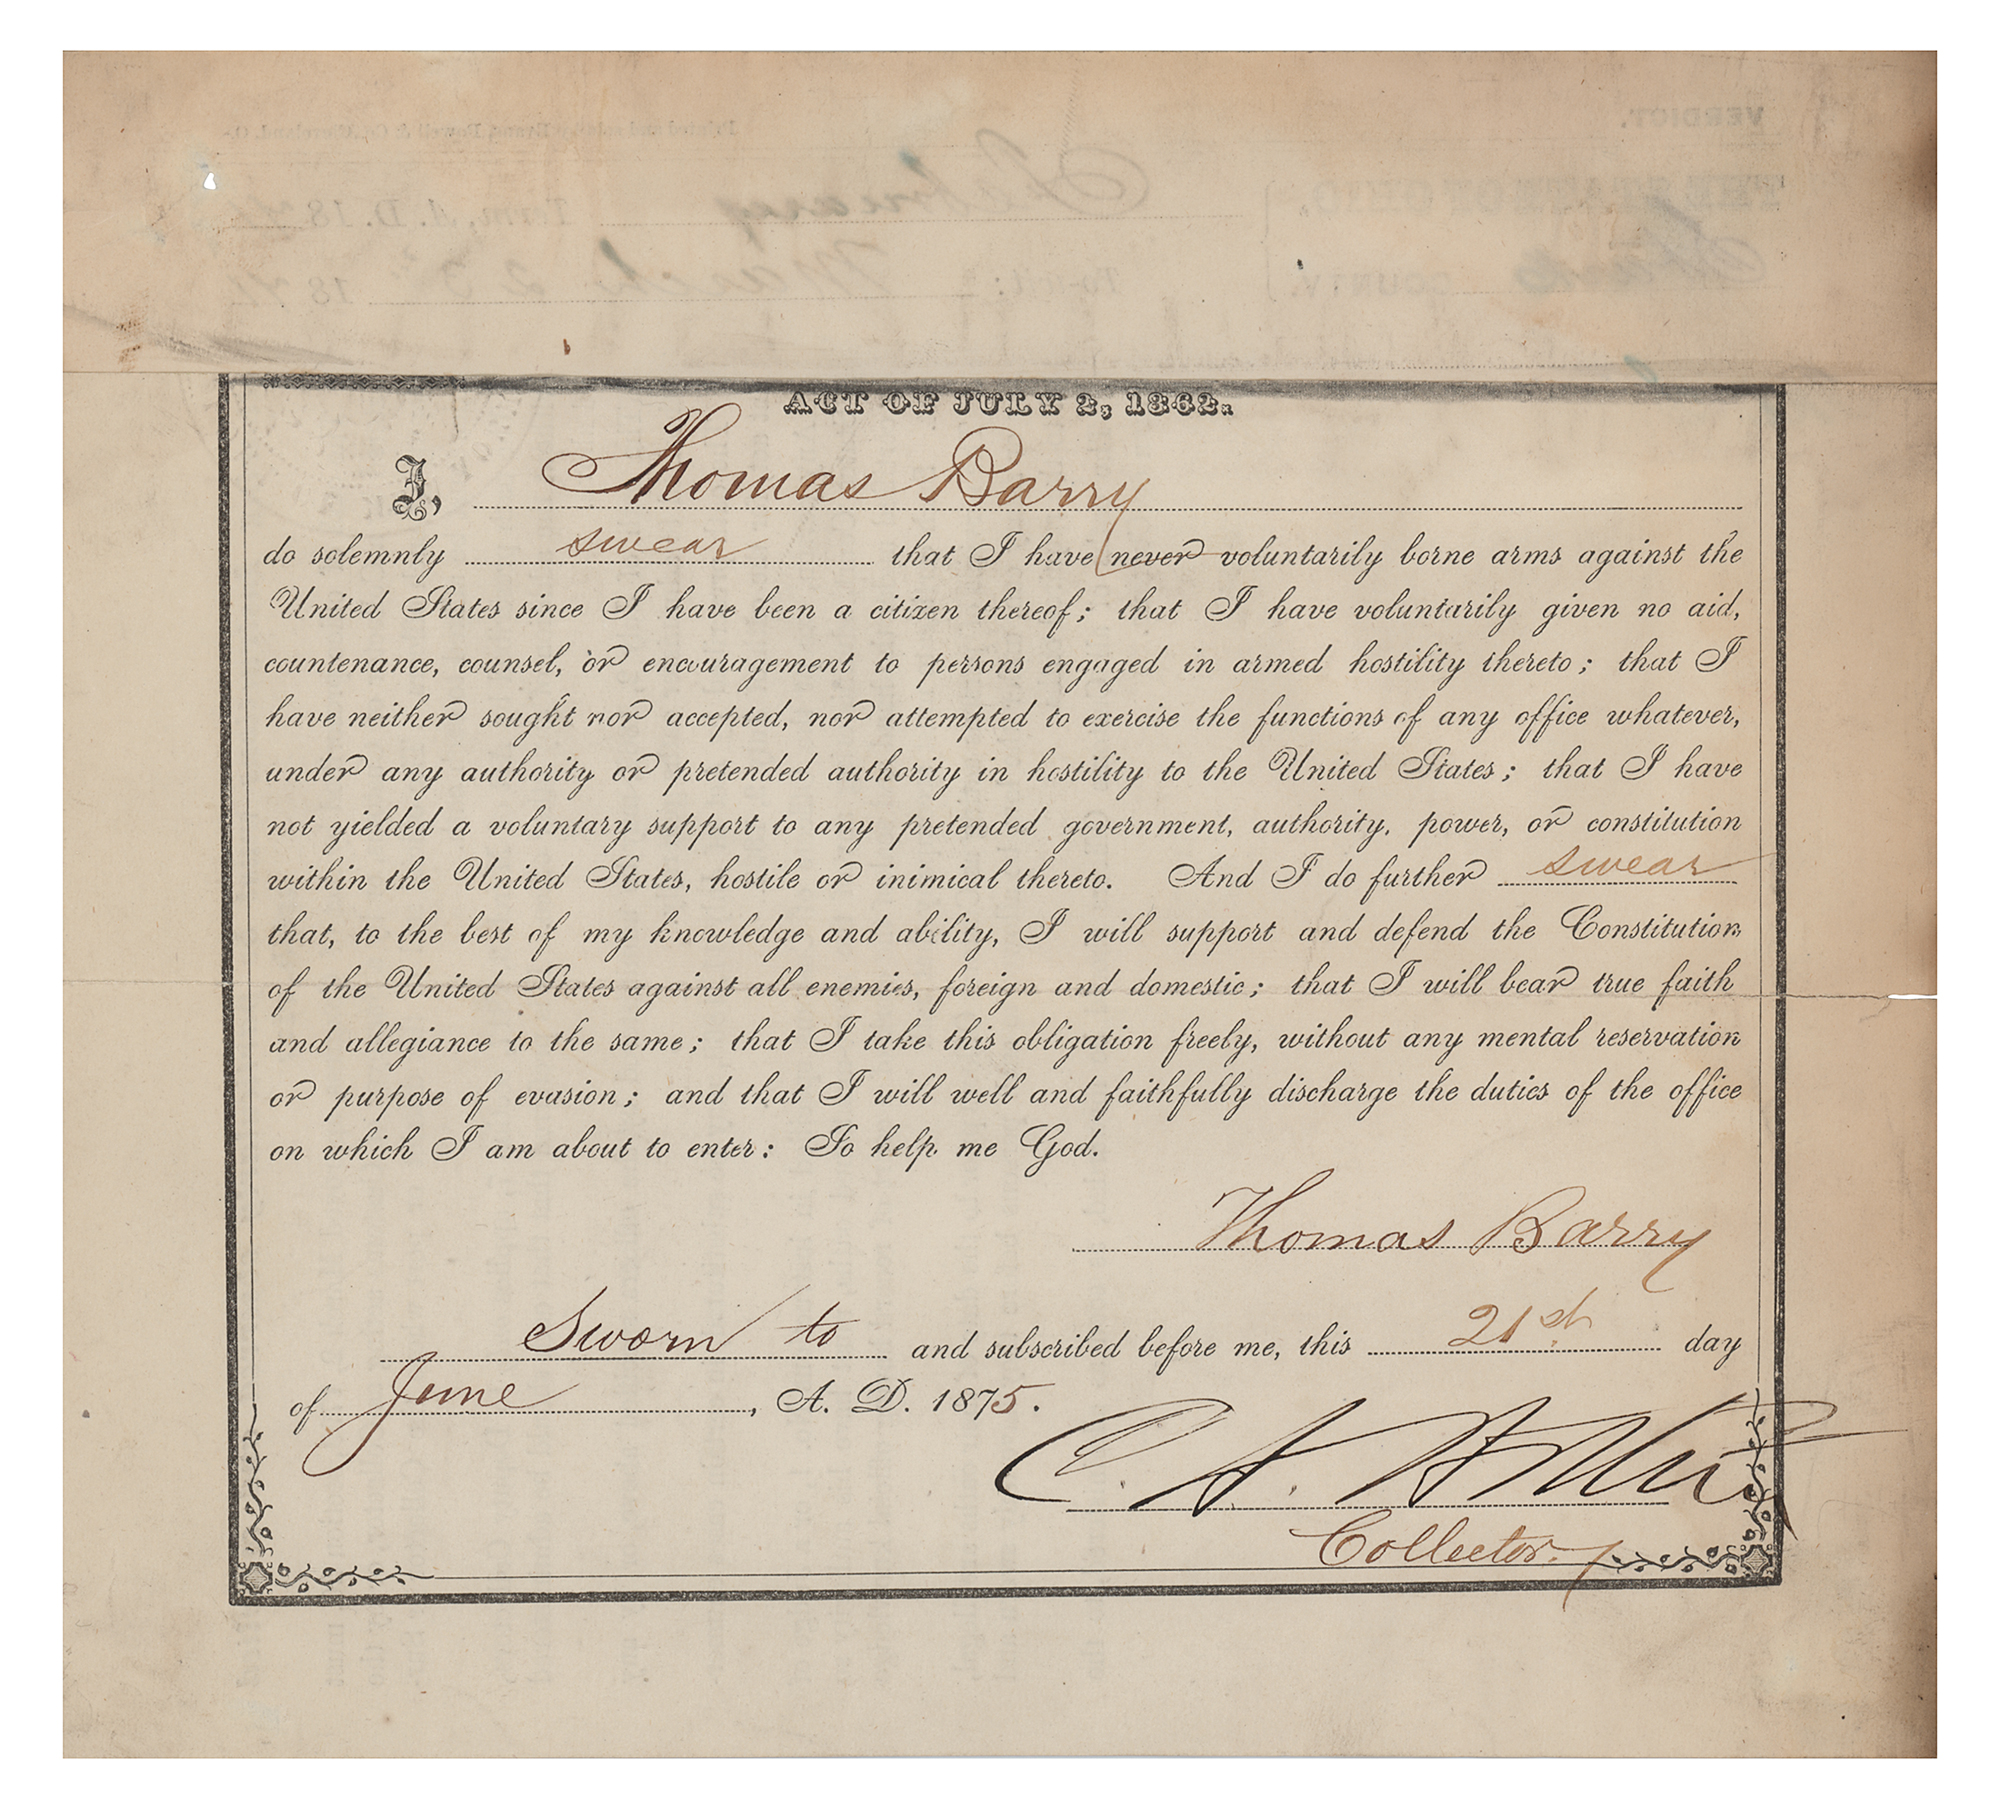 ACT OF JULY 2, 1862.
I, Thomas Barry
do solemnly swear that I have never voluntarily borne arms against the
United States since I have been a citizen thereof; that I have voluntarily given no aid,
countenance, counsel, or encouragement to persons engaged in armed hostility thereto; that I
have neither sought nor accepted, nor attempted to exercise the functions of any office whatever,
under any authority or pretended authority in hostility to the United States; that I have
not yielded a voluntary support to any pretended government, authority, power, or constitution
within the United States, hostile or inimical thereto. And I do further swear
that, to the best of my knowledge and ability, I will support and defend the Constitution
of the United States against all enemies, foreign and domestic; that I will bear true faith
and allegiance to the same; that I take this obligation freely, without any mental reservation
or purpose of evasion; and that I will well and faithfully discharge the duties of the office
on which I am about to enter: So help me God.
Thomas Barry
Sworn to and subscribed before me, this 21st day
of June, A. D. 1875.
C. A.
Collector.